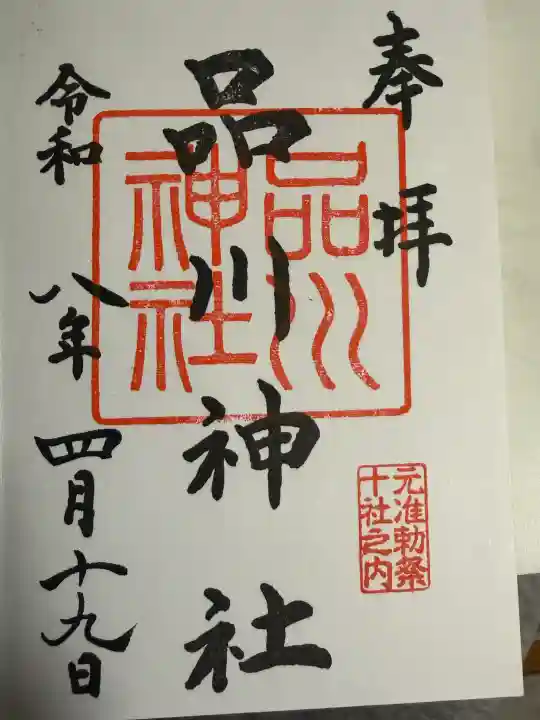 奉拝
品川神社
令和八年四月十九日
品川
神社
元准勅祭
十社之内